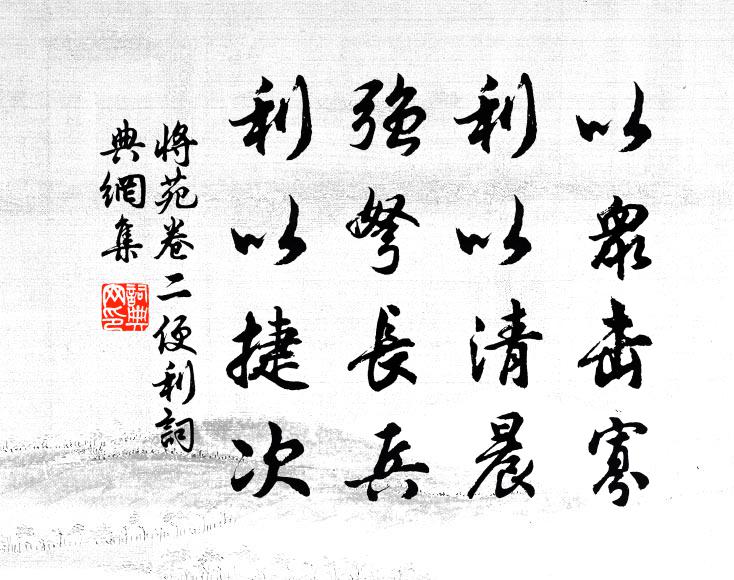 以眾击寡
利以清晨
強弩長兵
利以捷次
將苑卷二便利詞
典網集
詞典
网印